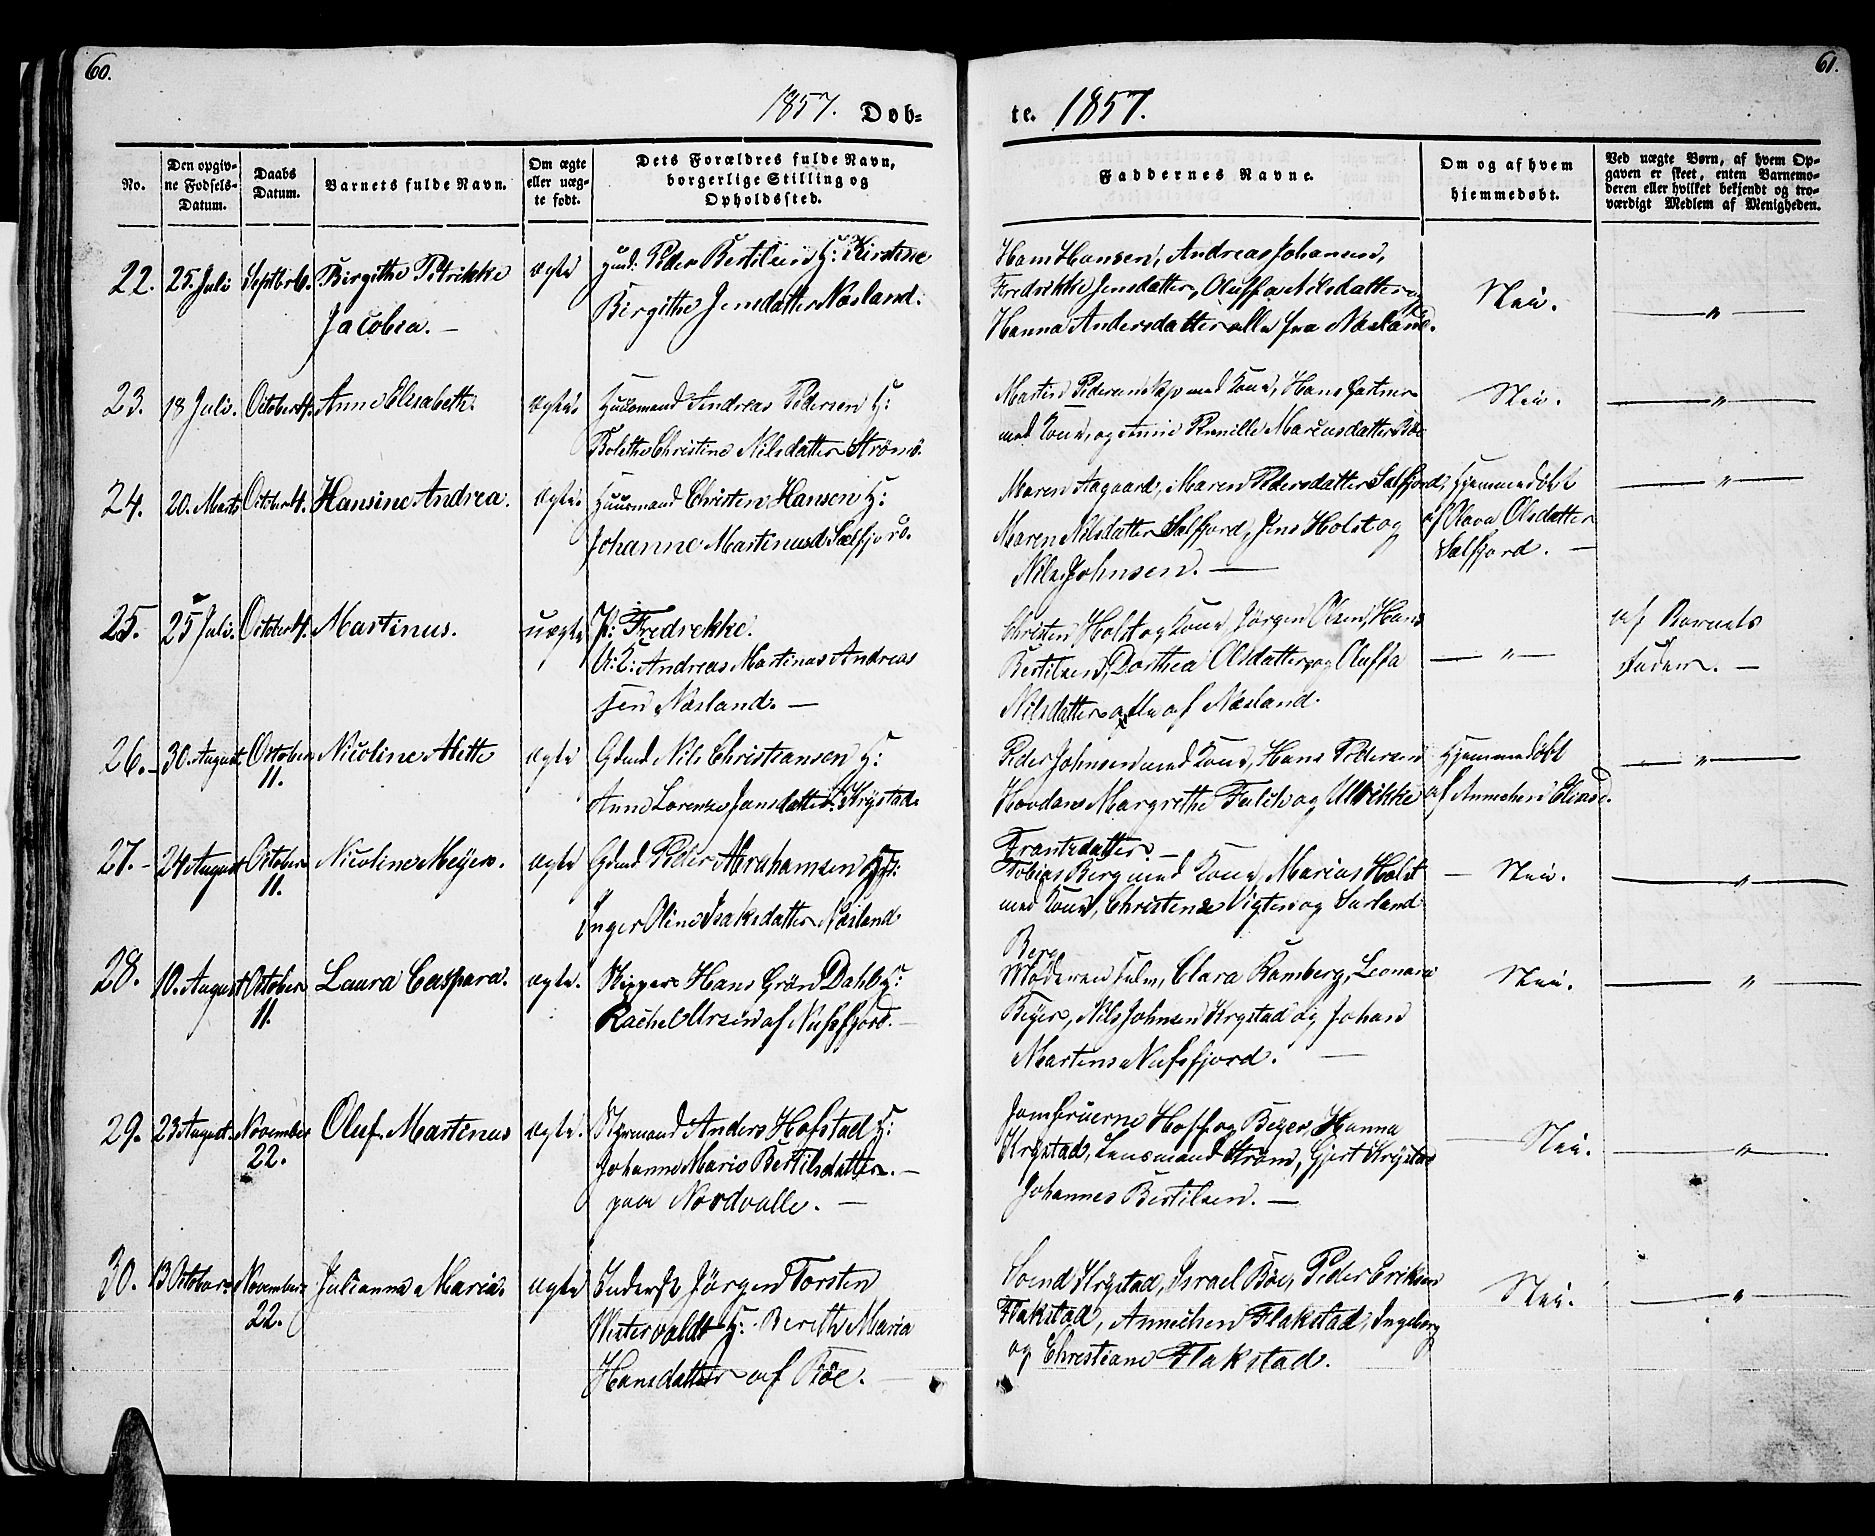 60.
61.
1857. Døb-
te. 1857.
No.
Den opgiv-
ne Fødsels-
Datum.
Daabs
Datum.
Barnets fulde Navn.
Om ægte
eller uæg-
te født.
Dets Forældres fulde Navn,
borgerlige Stilling og
Opholdssted.
Faddernes Navne.
Om og af hvem
hjemmedøbt.
Ved uægte Børn, af hvem Op-
gaven er skeet, enten Barnemo-
deren eller hvilket bekjendt og tro-
værdigt Medlem af Menigheden.
22. 25. Juli Septbr 6. Birgithe Petrikke
Jacobea. —
ægte
Huusmd. Peder Bertilsen H: Kirstine
Birgithe Jensdatter Næsland.
Hans Hansen, Andreas Johansen,
Fredrikke Jensdatter, Oluffa Nilsdatter og
Hanna Andersdatter alle fra Næsland.
Nei.
— " —
23. 18 Juli. October 4. Anne Elisabeth.
ægte.
Huusmand Andreas Pedersen H:
Bolethe Christine Nilsdatter Strømø.
Martin Pedersen med Kone, Hans
med Kone, og Anne Pernille Marcusdatter Böe
Nei.
— " —
24. 20. Marts October 4. Hansine Andrea.
ægte.
Huusmand Christen Hansen H:
Johanne Martinusd. Sælfjord.
Maren Aagaard, Maren Pedersdatter Sælfjord,
Maren Nilsdatter Sælfjord, Jens Holst og
Nils Johnsen. —
Hjemmedøbt
af Olava Olsdatter
Sælfjord. —
— " —
25. 25 Juli. October 4. Martinus.
uægte
P: Fredrekke.
U: K: Andreas Martinus Andreas
sen Næsland. —
Christen Holst og Kone, Jörgen Olsen, Hans
Bertilsen, Dorthea Olsdatter og Oluffa
Nilsdatter alle af Næsland.
— " —
af Barnets
Fader. —
26. 30. August October
11.
Nicoline Alette
ægte
Gdmd Nils Christiansen H:
Anne Lorenze Jansdatter Krystad.
Peder Johnsen med Kone, Hans Pedersen
Margrethe Falck og Ullrikke
Frantzdatter. —
Hjemmedøbt
af Annechen
— " —
27. 24 August October
11.
Nicoline Meÿer.
ægte
Gdmd Peder Abrahamsen H:
Inger Oline Isaksdatter Næsland.
Tobias Berg med Kone, Marius Holst
med Kone, Christense Vigten og
Berg
— Nei.
— " —
28. 10. August October
11.
Laura Caspara.
ægte.
Skipper Hans Grön Dahl H:
Rachel Ursin af Nufsfjord. —
Moderen selv, Clara Ramberg, Leonora
Beÿer, Nils Johnsen Krystad og Johan
Martens Nufsfjord. —
Nei.
— " —
29. 23 August. November
22.
Oluf Martinus
ægte.
Styrmand Anders Hofstad H:
Johanne Marie Bertilsdatter. —
paa Nordvalle. —
Jomfruerne Hoff og Beÿer, Hanna
Krystad, Lensmand Strøm, Gjert Krÿstad
Johannes Bertilsen. —
— Nei.
— " —
30. 13 October November
22.
Julianna Maria.
ægte
Inderst Jörgen Torsten
Westervaldt H: Bereth Maria
Hansdatter af Böe. —
Soend Krystad, Israel Böe, Peder Eriksen
Flakstad, Annechen Flakstad, Ingeborg
og Christiane Flakstad.
Nei.
— " —